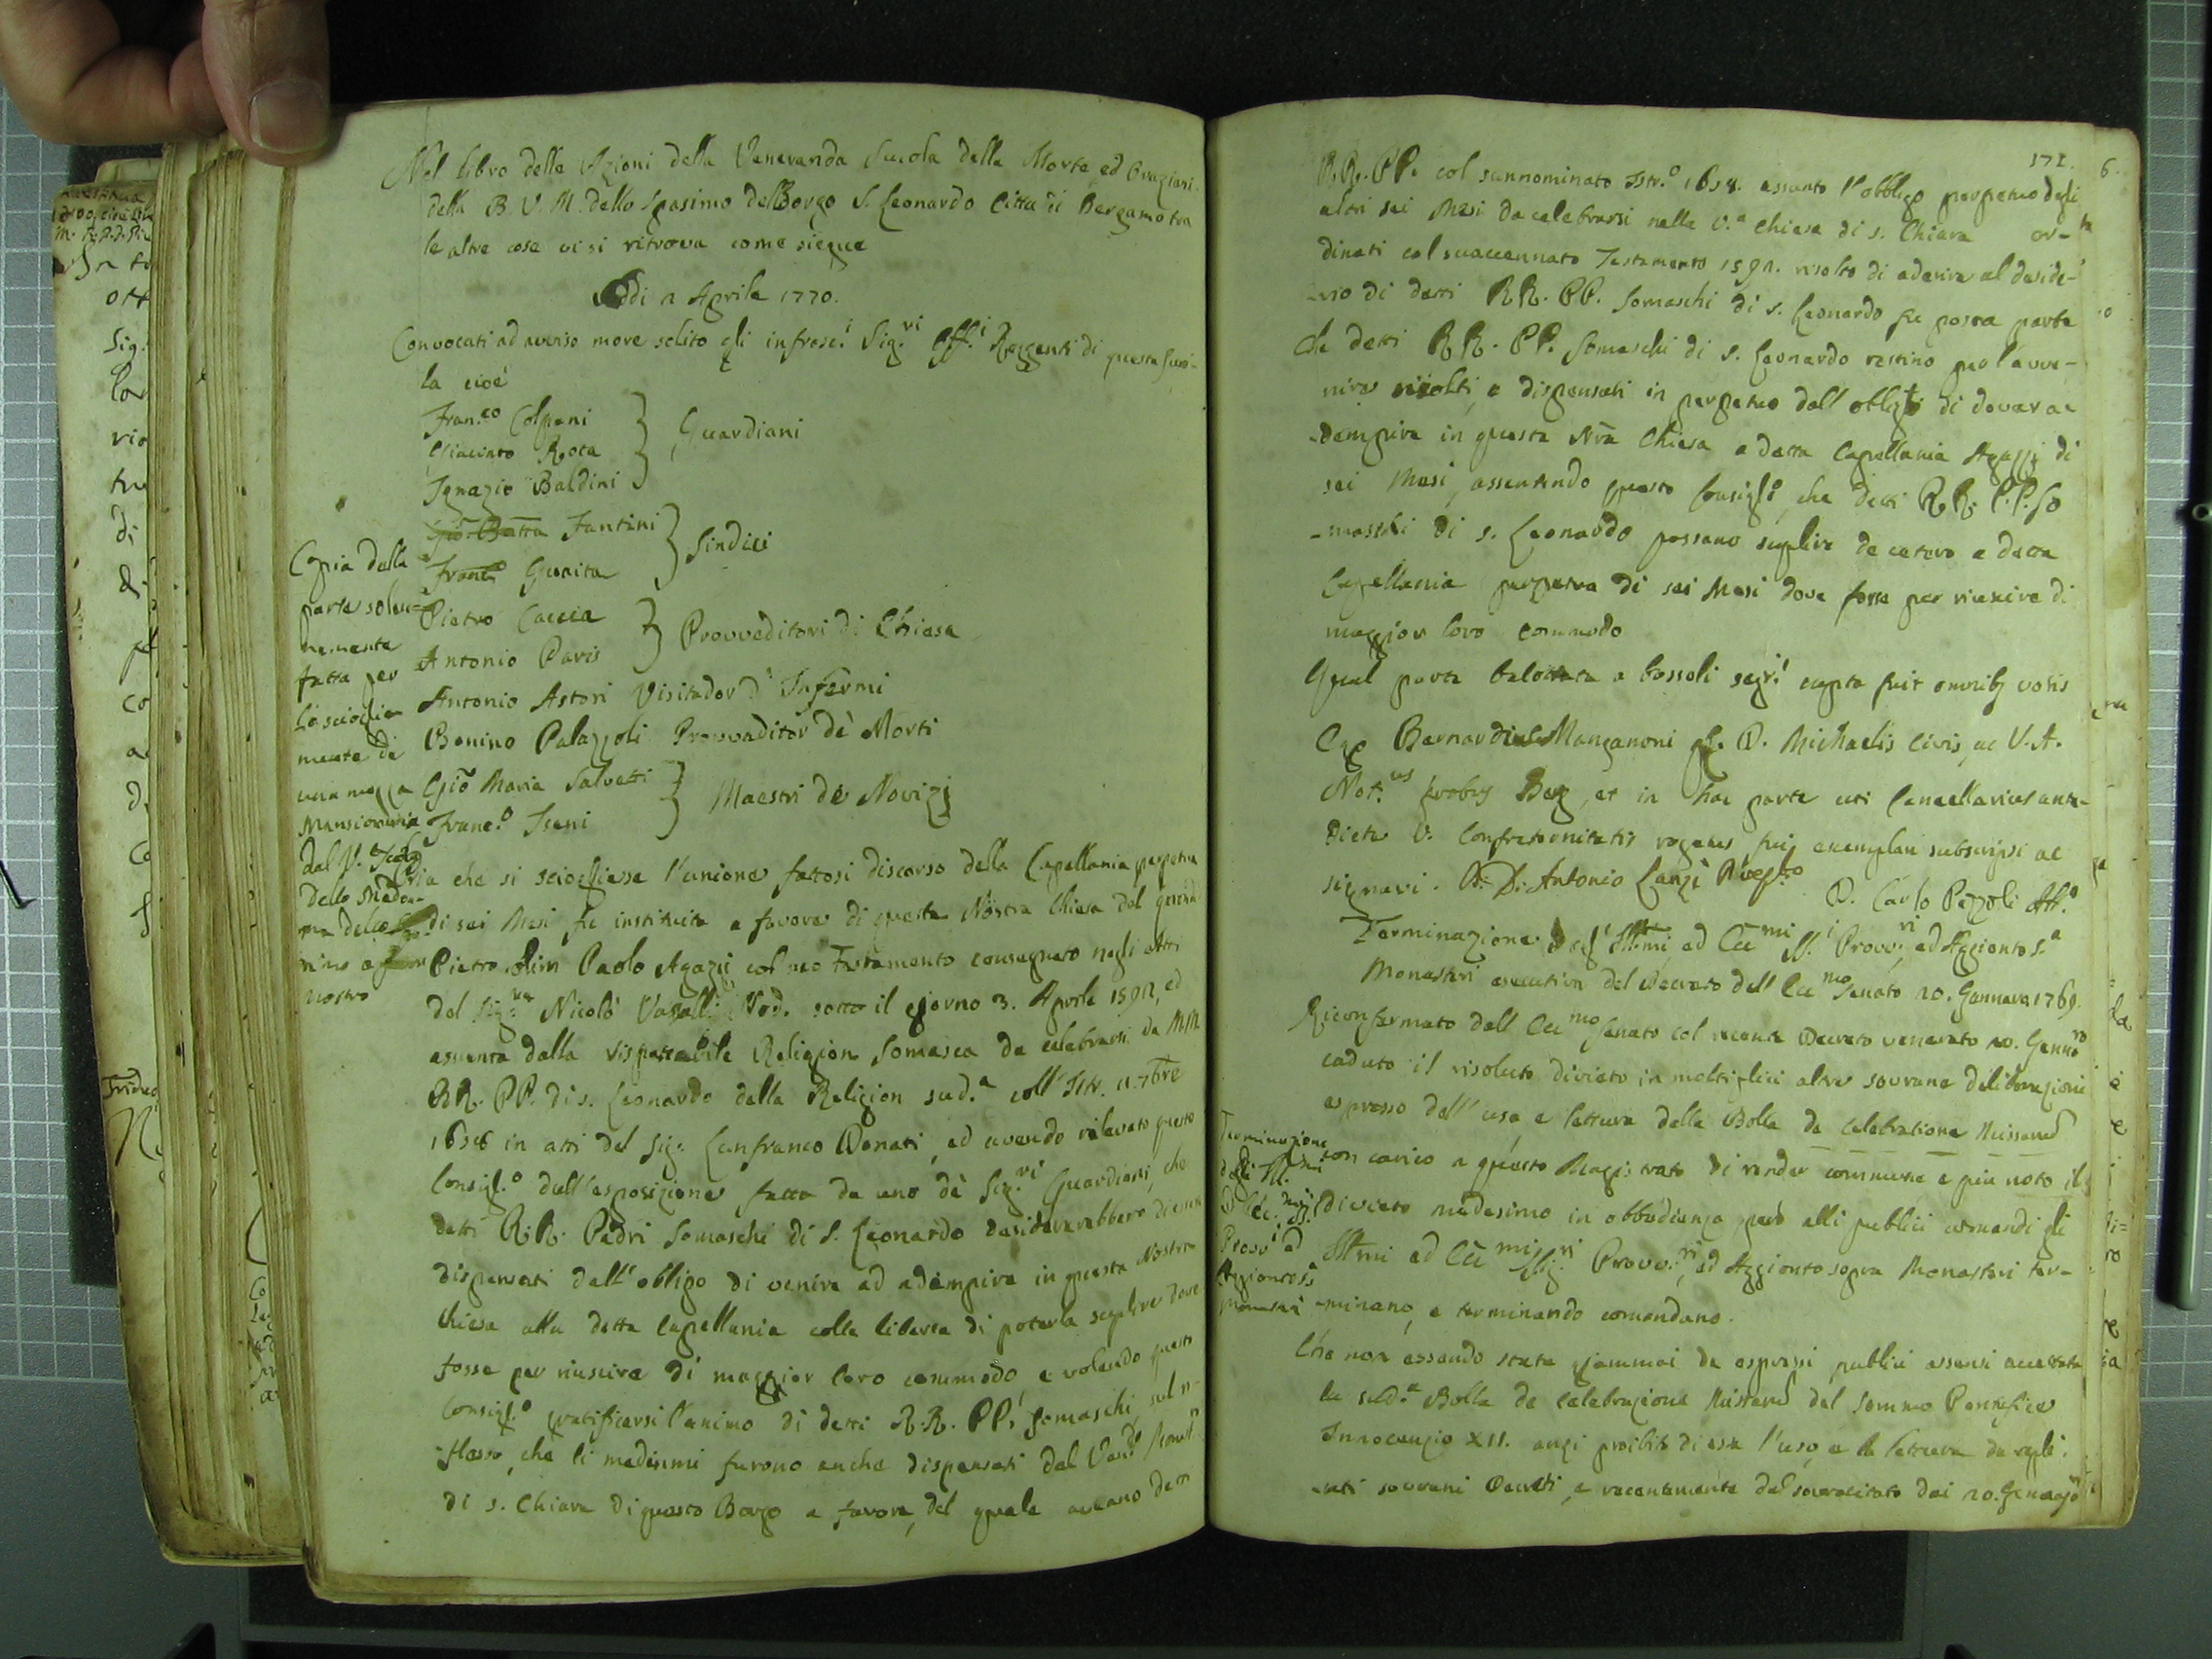 Nel libro delle Azioni della Veneranda Scuola della Morte, ed Orazione
della B. V. M. dello Spasimo del Borgo S. Leonardo Citta di Bergamo tra
le altre cose vi si ritrova come siegue
Addi 2 Aprile 1770.
Convocati ad avviso more solito gli infrasc.i Sig.ri Off.i Reggenti di questa Scuo-
la cioè
Fran.co Colpani
Giacinto Rota
Ignazio Baldini
Guardiani
Gio Batta Fantini
Franc.o Guaita
Sindici
Pietro Caccia
Antonio Paris
Provveditori di Chiesa
Antonio Astori Visitador d' Infermi
Bonino Palazzoli Provveditor dè Morti
Gio Maria Salvetti
Franc.o Iseni
Maestri dè Novizj
Copia della
parte solen=
nemente
fatta per
lo scioglie
mento di
una mezza
Mansionaria
dal V. Scola
della Madon-
na dello
nostro
che si sciogliesse l'unione fattosi discorso della Capellania perpetua
di sei Mesi fu instituita a favore di questa Nostra Chiesa dal
Pietro olim Paolo Agazzi col suo Testamento consegnato negli atti
del Sig.r Nicolò Nod. sotto il giorno 3. Aprile 1592, ed
assunta dalla rispettabile Religion Somasca da celebrarsi da MM.
RR. PP. di s. Leonardo della Religion sud.a coll' Istr. 11. 7bre
1658 in atti del Sig.r Lanfranco Donati, ed avendo rilevato questo
Consigl.o dall'esposizione fatta da uno dè Sig.ri Guardiani, che
detti R.R. Padri Somaschi di S. Leonardo desidererebbero di esser
dispensati dall'obligo di venire ad adempire in questa Nostra
Chiesa alla detta Capellania colla libertà di poterla suplire dove
fosse per riuscire di maggior loro commodo, e volendo questo
Consigl.o gratificarsi l'animo di detti R.R. PP. Somaschi, sul ri-
flesso, che li medesimi furono anche dispensati dal Ven.do Monast.o
di s. Chiara di questo Borgo a favore, del quale aveano detti
171.
R.R. PP. col sunnominato Istr.o 1658. assunto l'obbligo perpetuo degli
altri sei Mesi da celebrarsi nella V.a Chiesa di s. Chiara or-
dinati col suaccennato Testamento 1592. risolto di aderire al deside-
rio di detti RR. PP. Somaschi di s. Leonardo fu posta parte
che detti RR. PP. Somaschi di s. Leonardo restino per l'avve-
nire sciolti, e dispensati in perpetuo dall' obligo di dover a
dempire in questa Nra Chiesa a detta Capellania Agazzi di
sei Mesi, assentendo questo Consigl.o, che detti RR. P.P. So
-maschi di s. Leonardo possano suplire de cetero a detta
Capellania perpetua di sei Mesi dove fosse per riuscire di
maggior loro commodo
Qual parte balottata a bossoli segr.i capta fuit omnib; votis
Ego Bernardinus Manganoni q. D. Michaelis Civis, ac V. A.
Not.us probus Berg. et in hac parte uti Cancellarius ante-
dicte V. Confraternitatis rogatus fui, exemplari subscripsi ac
signavi. D. Antonio Lanzi D. Carlo Pezzoli Att.o
Terminazione degl' Illmi ed Ecc.mi SS.i Provv.ri, ed Aggionto s.a
Monasteri esecutiva del Decreto dell' Ecc.mo Senato 20. Gennaro 1769.
Riconfermato dall' Ecc.mo Senato col recente Decreto venerato 20. Genn.ro
caduto il risoluto divieto in moltiplici altre sovrane deliberazioni
espresso dall' uso e lettura della Bolla de Celebratione Missarum
con carico a questo Magistrato di render commune e più noto il
divieto medesimo in obbedienza però alli publici comandi gli
Illmi ed Ecc.mi Sig.ri Provv.ri, ed Aggionto sopra Monasteri ter-
-minano, e terminando comandano.
Terminazione
degli Ill.mi
ed Ecc.mi SS.
Provv.i ed
Aggionto s.a
Monasteri
Che non essendo stata giammai da espressi publici assensi accettata
la sud.a Bolla de Celebrazione Missarum del Sommo Pontefice
Innocenzio XII. anzi proibito di essa l'uso, e la lettura da repli-
-cati sovrani Decreti, e recentemente dal sovracitato dei 20. Gennajo